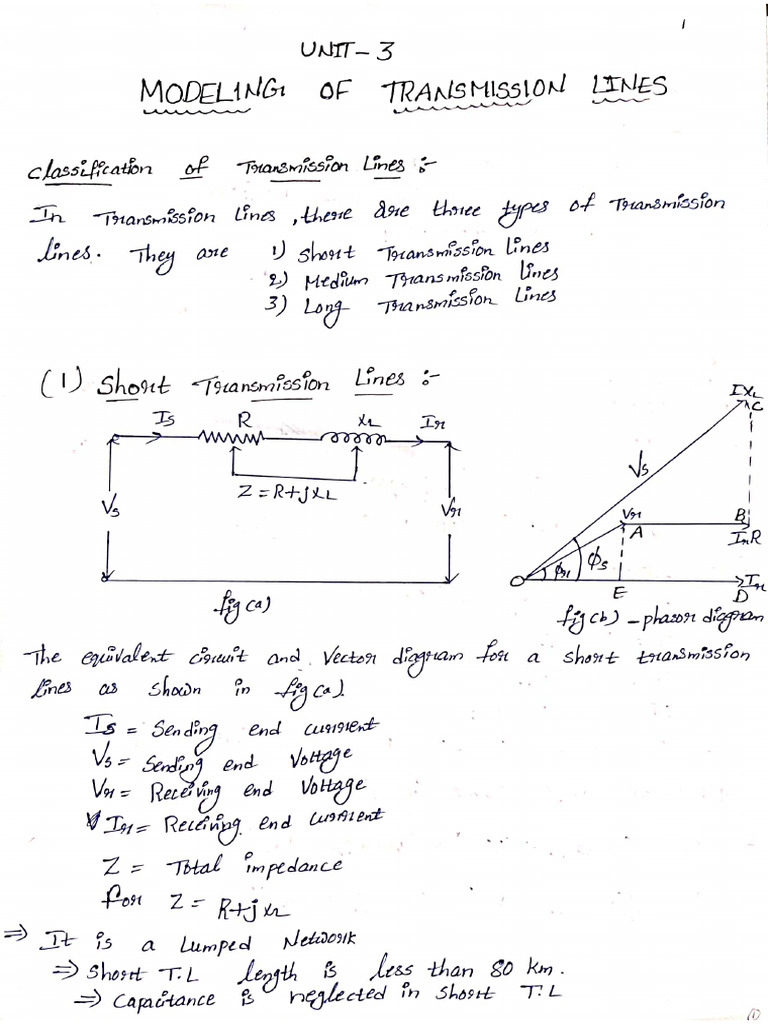 1
UNIT-3
MODELING OF TRANSMISSION LINES
Classification of Transmission Lines :-
In Transmission lines, there are three types of Transmission
lines. They are 1) Short Transmission lines
2) Medium Transmission lines
3) Long Transmission Lines
(1) Short Transmission Lines :-
Is R XL Ir
Z = R+jXL
Vs Vr
fig(a)
IXL
C
Vs
Vr
A B
IrR
φr φs
O E D Ir
fig(b) - phasor diagram
The equivalent circuit and Vector diagram for a short transmission
lines as shown in fig(a).
Is = Sending end current
Vs = Sending end Voltage
Vr = Receiving end Voltage
Ir = Receiving end current
Z = Total impedance
for Z = R+jXL
⇒ It is a Lumped Network
⇒ Short T.L length is less than 80 km.
⇒ Capacitance is neglected in short T.L
1